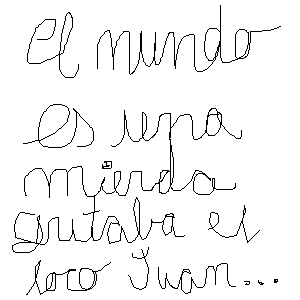 el mundo
es una
mierda
gritaba el
loco Juan...